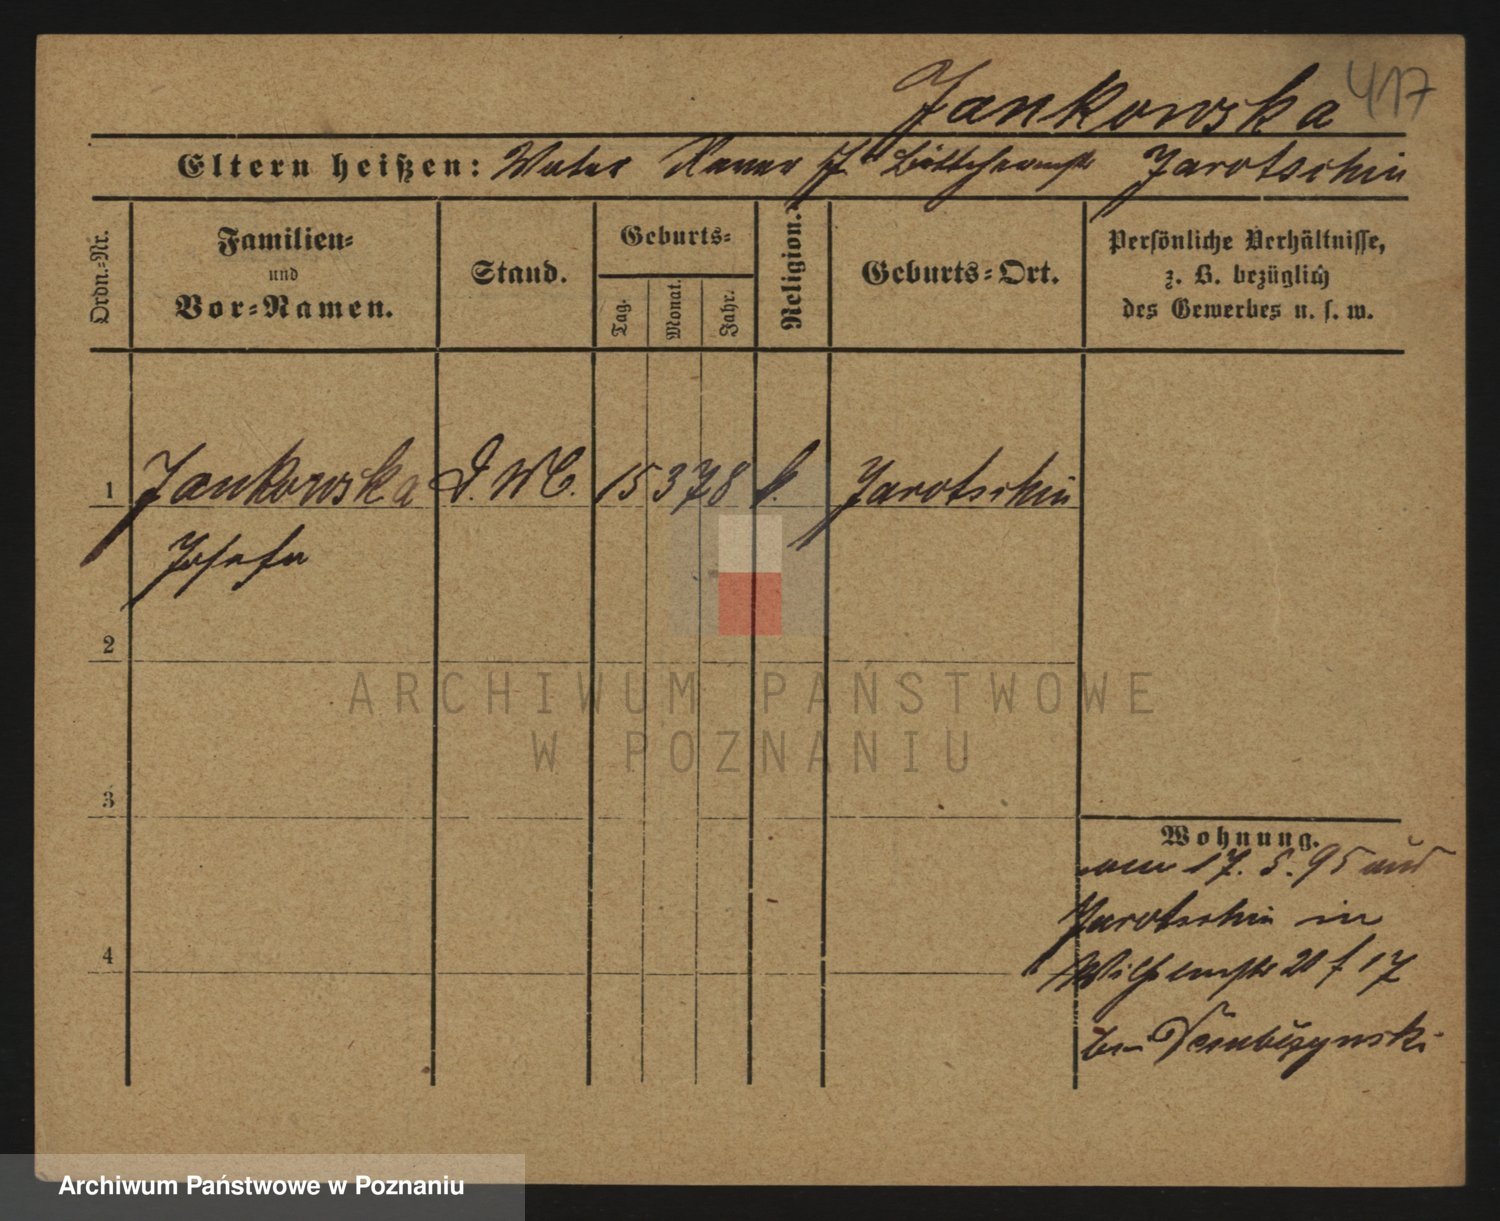 417
Jankowska
Eltern heißen: Vater Böttchermstr Jarotschin
Ordn.-Nr.
Familien-
und
Vor-Namen.
Stand.
Geburts-
Tag.
Monat.
Jahr.
Religion.
Geburts-Ort.
Persönliche Verhältnisse,
z. B. bezüglich
des Gewerbes u. s. w.
1 Jankowska D. M. 15 3 78 k. Jarotschin
Josefa
2
ARCHIWUM PAŃSTWOWE
W POZNANIU
3
Wohnung.
17. 5. 95 aus
Jarotschin in
Wilhelmstr 20 f 17
bei Dembczynski
4
Archiwum Państwowe w Poznaniu